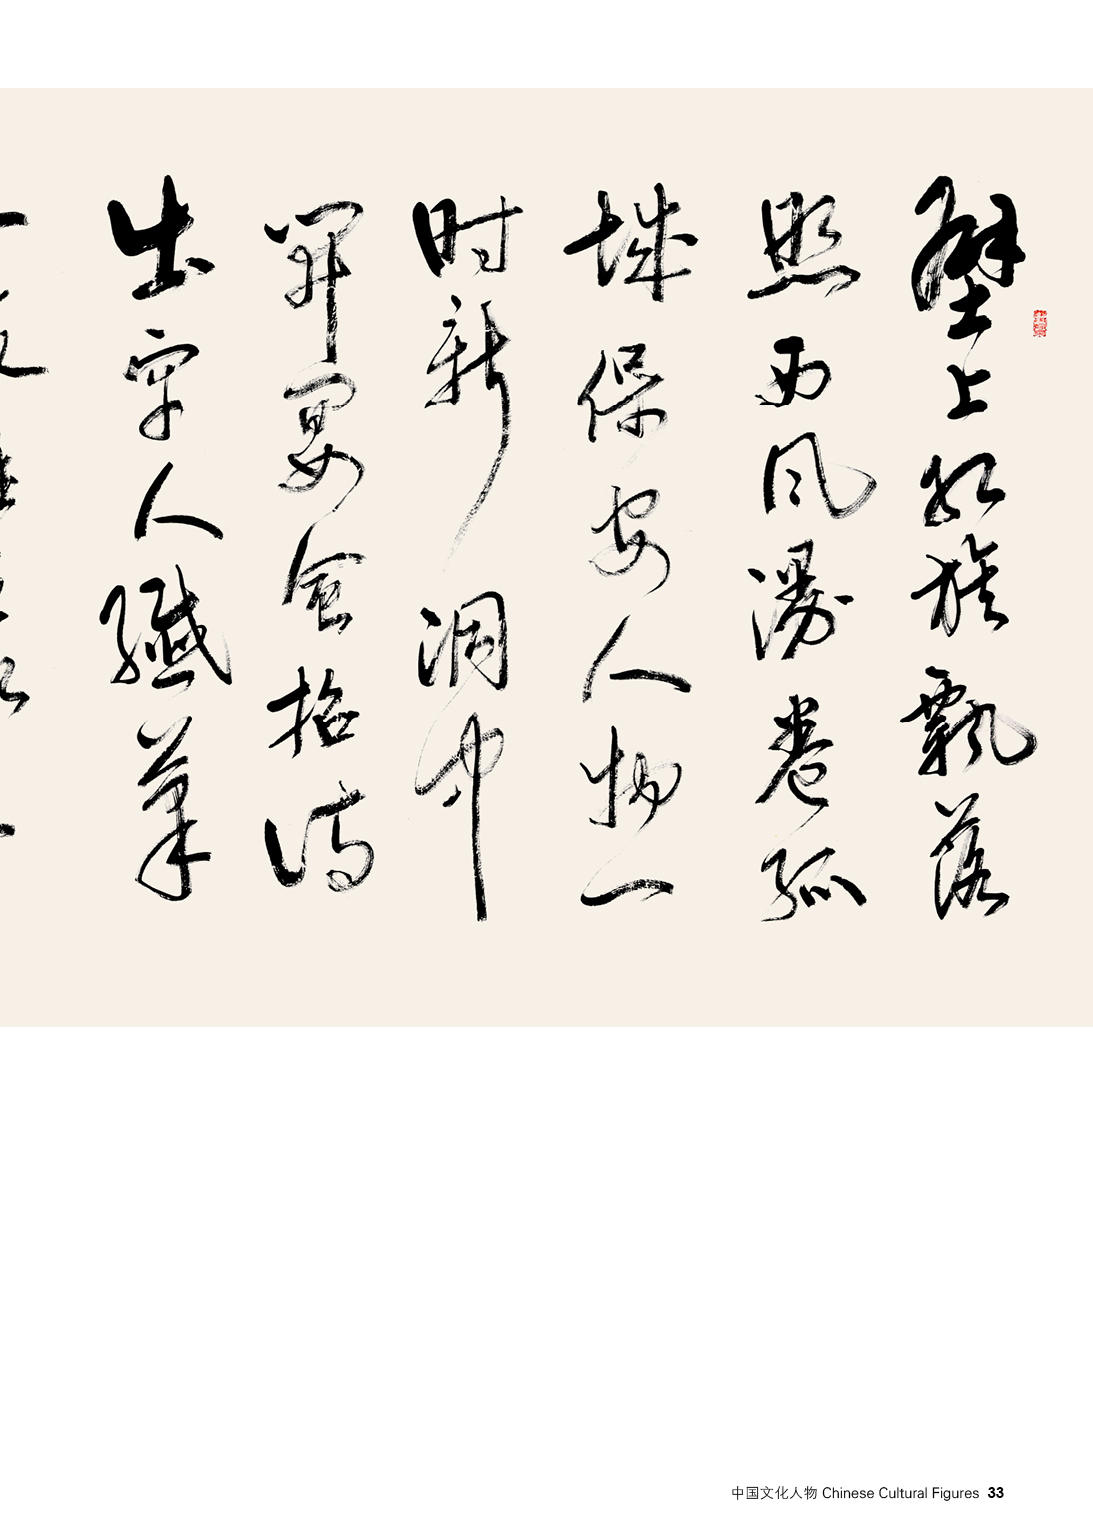 壁上红旗飄落
照西风漫卷孤
城保安人物一
时新洞中
開宴會招待
出牢人纖筆
中国文化人物 Chinese Cultural Figures 33